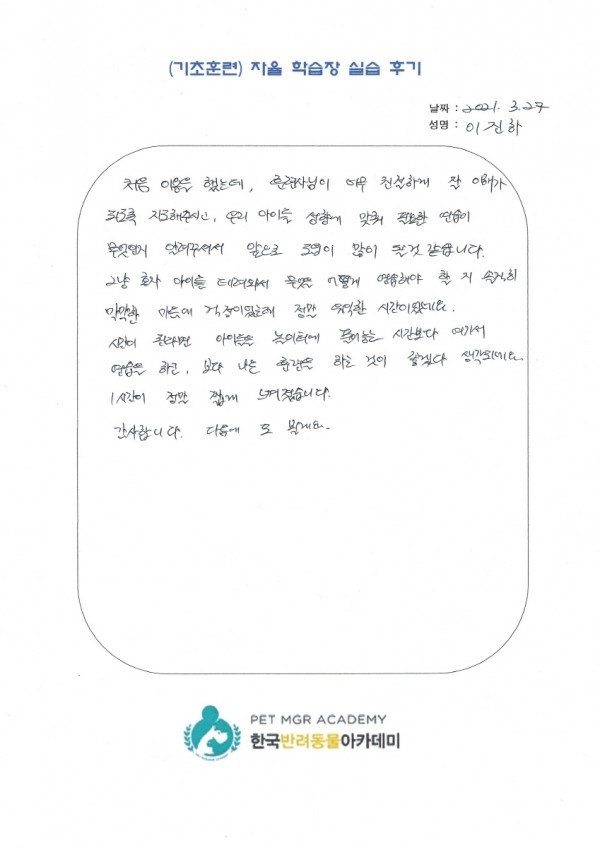 (기초훈련) 자율 학습장 실습 후기
날짜 : 2021. 3. 27
성명 : 이진하
처음 이용을 했는데, 훈련사님이 너무 친절하게 잘 이해가
되도록 지도해주시고, 우리 아이들 성향에 맞춰 필요한 연습이
무엇인지 알려주셔서 앞으로 도움이 많이 될 것 같습니다.
그냥 혼자 아이들 데려와서 무엇을 어떻게 연습해야 할 지 솔직히
막막한 마음에 걱정이었는데 정말 유익한 시간이었네요.
시간이 된다면 아이들을 놀이터에 풀어놓는 시간보다 여기서
연습을 하고, 보다 나은 훈련을 하는 것이 좋겠다 생각되네요.
1시간이 정말 짧게 느껴졌습니다.
감사합니다. 다음에 또 뵐게요.
PET MGR ACADEMY
한국반려동물아카데미